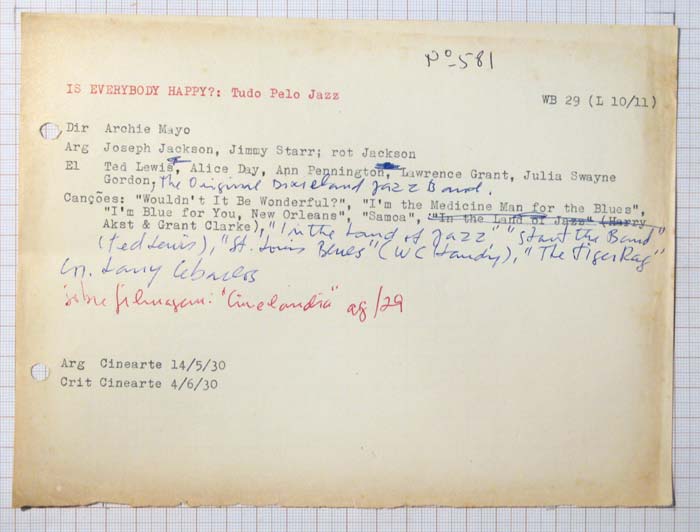 Nº 581
IS EVERYBODY HAPPY?: Tudo Pelo Jazz
WB 29 (L 10/11)
Dir Archie Mayo
Arg Joseph Jackson, Jimmy Starr; rot Jackson
El Ted Lewis, Alice Day, Ann Pennington, Lawrence Grant, Julia Swayne
Gordon, The Original Dixieland Jazz Band.
Canções: "Wouldn't It Be Wonderful?", "I'm the Medicine Man for the Blues",
"I'm Blue for You, New Orleans", "Samoa", "In the Land of Jazz" (Harry
Akst & Grant Clarke), "In the Land of Jazz" "Start the Band"
(Ted Lewis), "St. Louis Blues" (WC Handy), "The Tiger Rag"
Larry Ceballos
sobre filmagem: "Cinelandia" ag/29
Arg Cinearte 14/5/30
Crit Cinearte 4/6/30